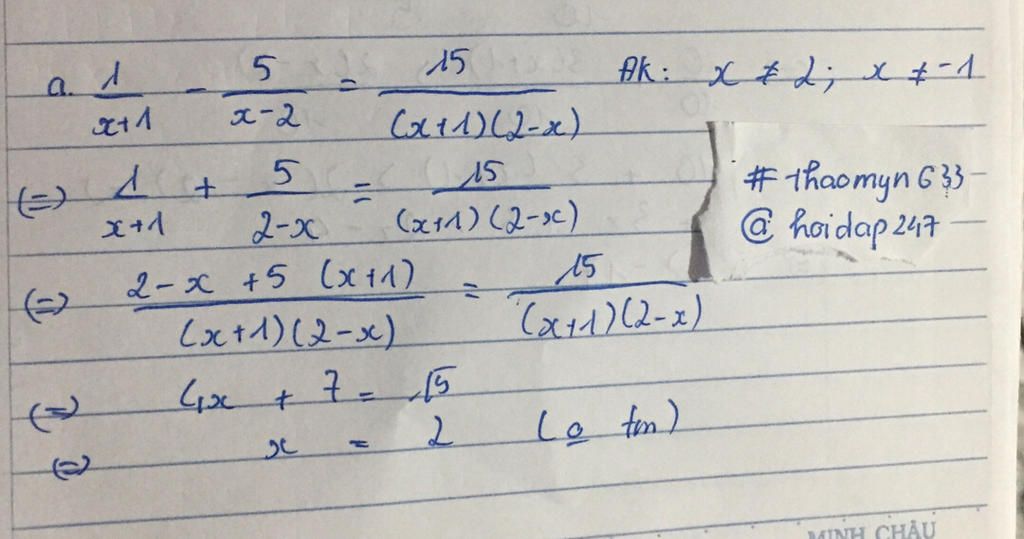 a. 1/(x+1) - 5/(x-2) = 15/((x+1)(2-x)) ĐK: x ≠ 2; x ≠ -1
(=) 1/(x+1) + 5/(2-x) = 15/((x+1)(2-x))
# thaomyn633
@ hoidap247
(=) (2-x+5(x+1))/((x+1)(2-x)) = 15/((x+1)(2-x))
(=) 4x + 7 = 15
(=) x = 2 (o tm)
MINH CHÂU